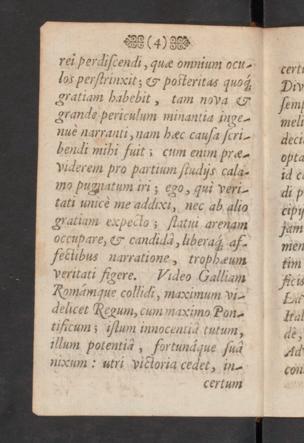 (4)
rei perdiscendi, quæ omnium ocu-
los perstrinxit; & posteritas quoq;
gratiam habebit, tam nova &
grande periculum minantia inge-
nuè narranti, nam hæc causa scri-
bendi mihi fuit; cum enim præ-
viderem pro partium studijs cala-
mo pugnatum iri; ego, qui veri-
tati unicè me addixi, nec ab alio
gratiam expecto; statui arenam
occupare, & candidâ, liberaq; af-
fectibus narratione, trophæum
veritati figere. Video Galliam
Romámque collidi, maximum vi-
delicet Regum, cum maximo Pon-
tificum; istum innocentiâ tutum,
illum potentiâ, fortunáque suâ
nixum: utri victoria cedet, in-
certum
certu
Div
semp
meli
decid
opta
id c
di p
cipij
jam
men
tim
ficis
La
Ital
dê,
Ad
con